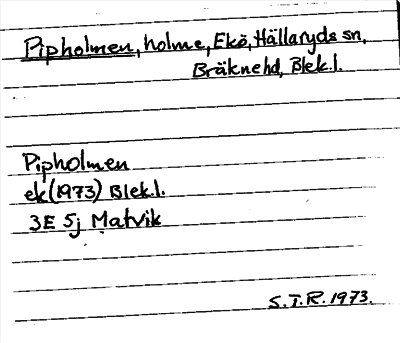 Pipholmen, holme, Ekö, Hällaryds sn,
Bräkne hd, Blek.l.
Pipholmen
ek (1973) Blek.l.
3E 5j Matvik
S.T.R. 1973.